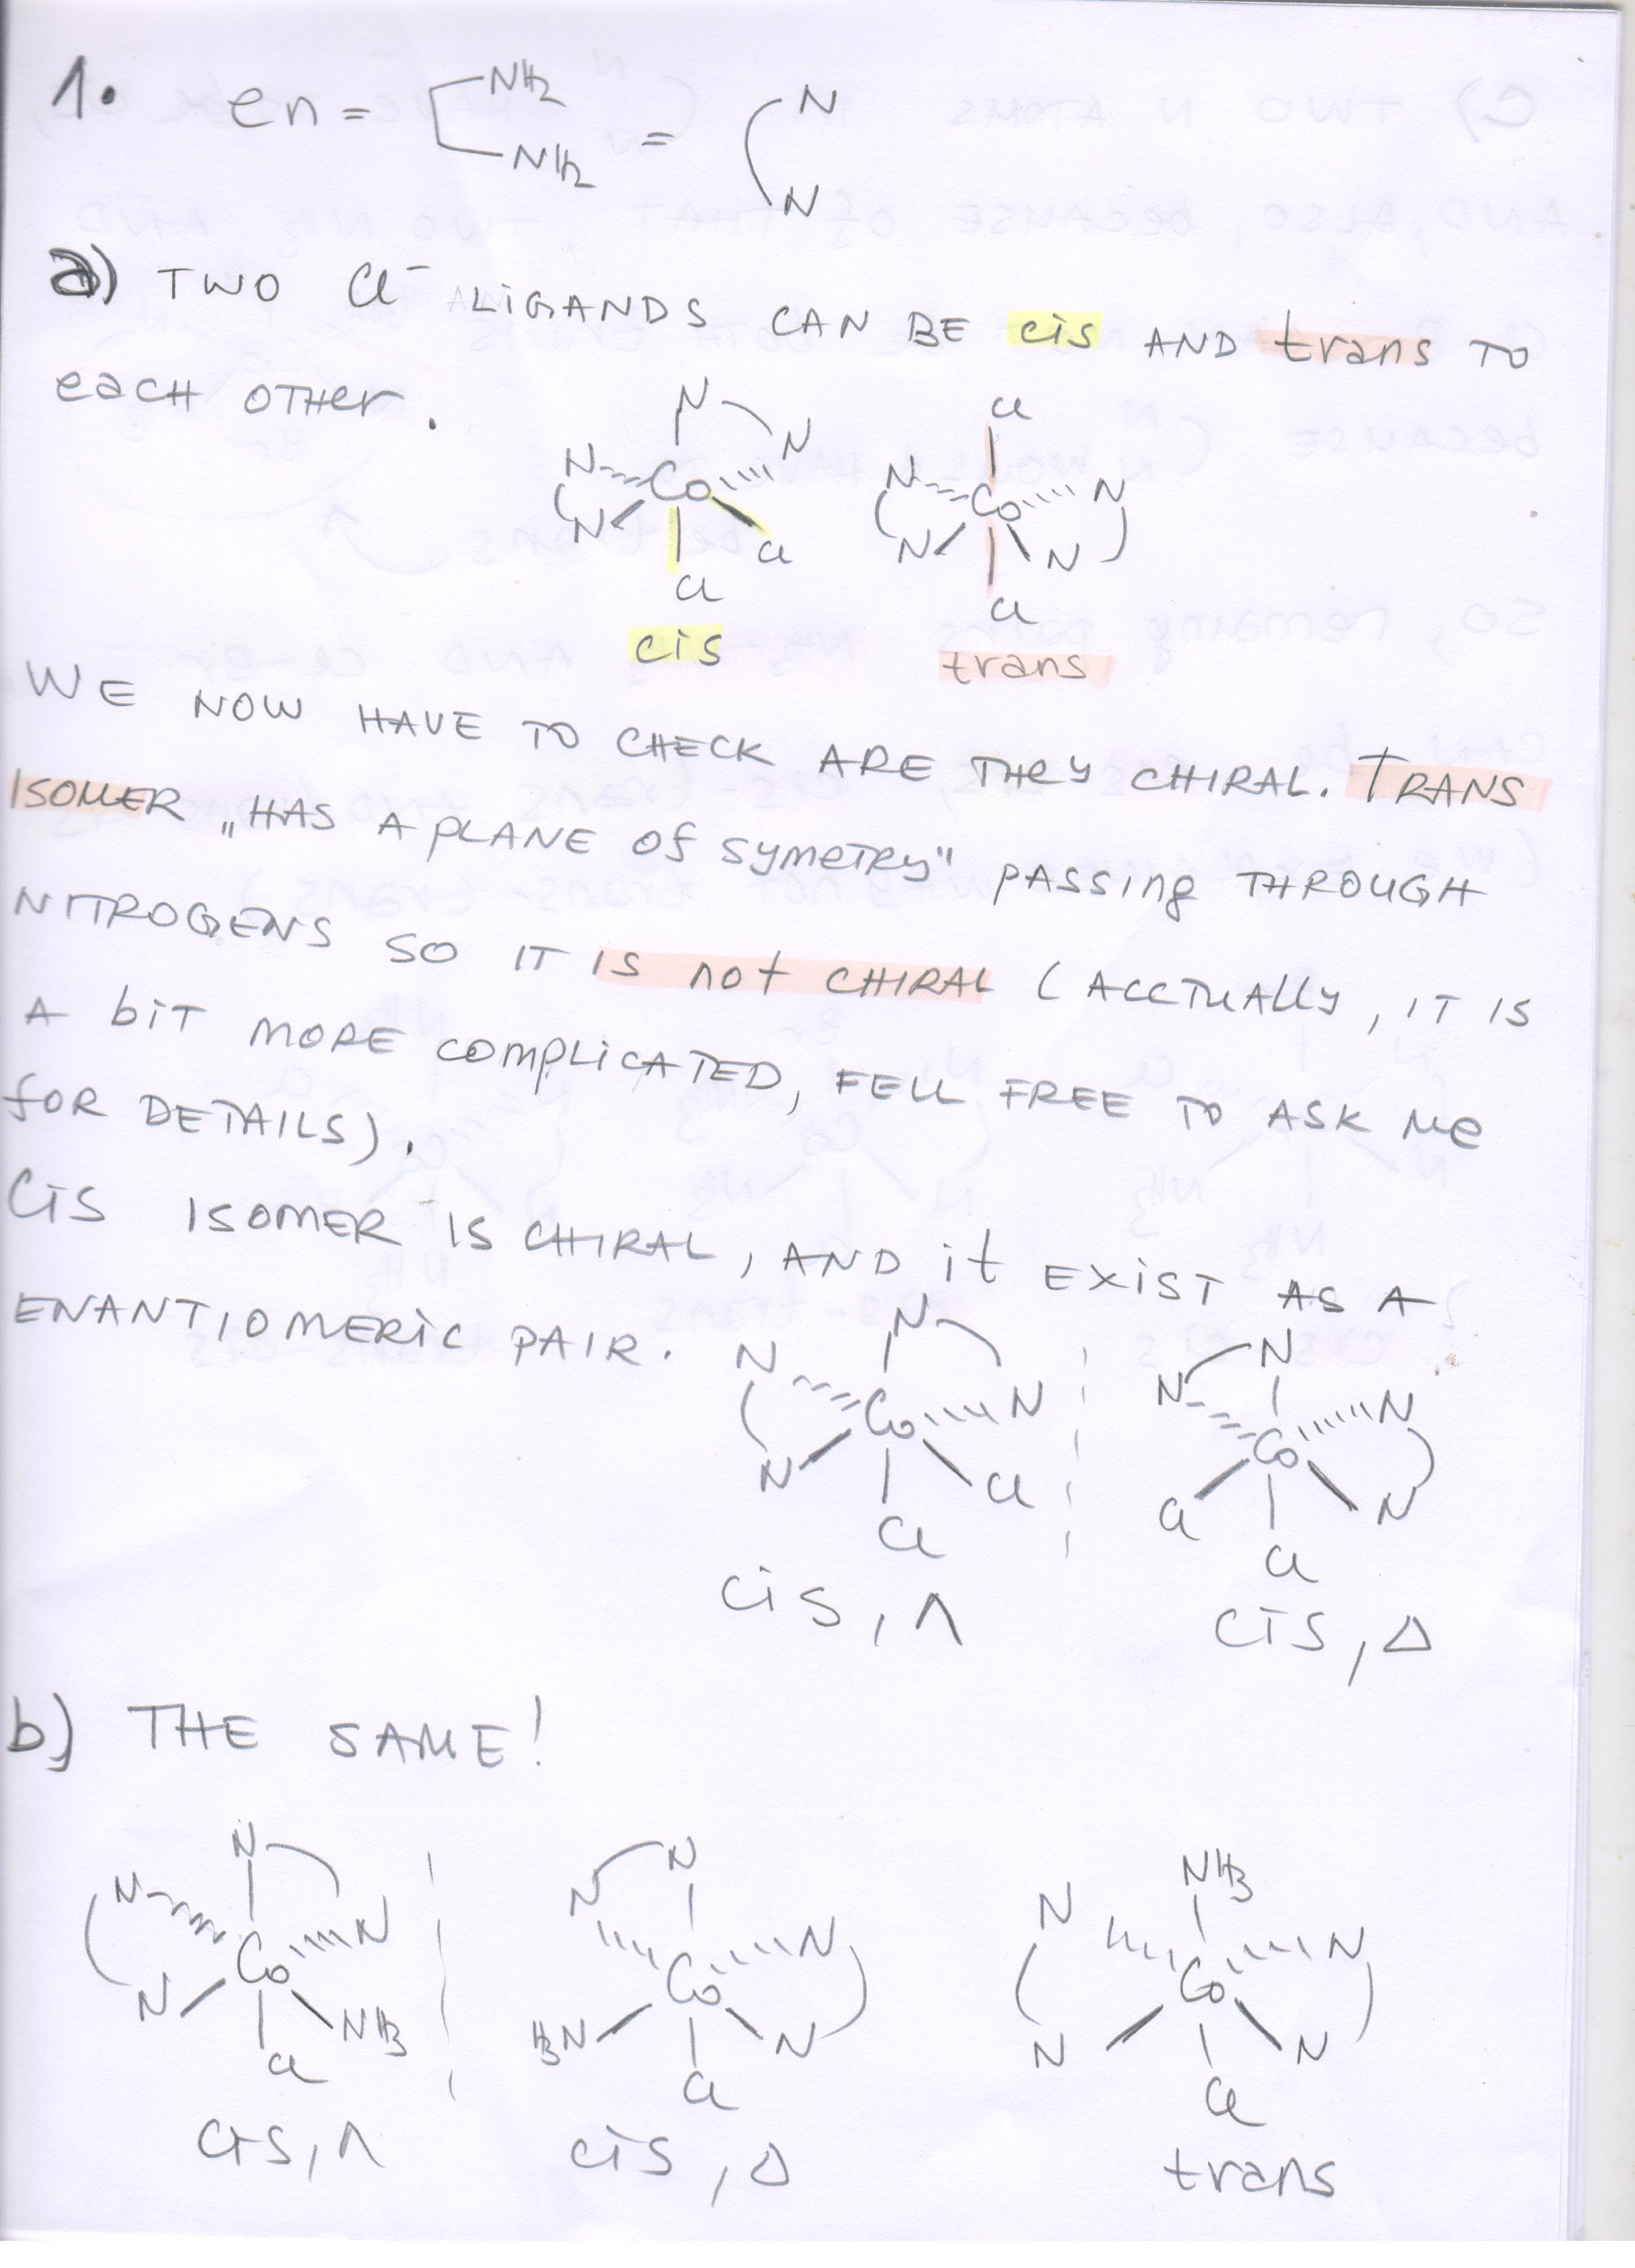 1. en = NH2 NH2 = N N
a) TWO Cl⁻ LIGANDS CAN BE cis AND trans TO
each OTHer.
N N N N Co Cl Cl
Cl N N Co N N Cl
cis
trans
WE NOW HAVE TO CHECK ARE THEY CHIRAL. TRANS
ISOMER „HAS A PLANE OF SYMETRY" PASSING THROUGH
NITROGENS SO IT IS not CHIRAL (ACCTUALLY, IT IS
A bit MORE COMPLICATED, FELL FREE TO ASK Me
for DETAILS).
Cis ISOMER IS CHIRAL, AND it EXIST AS A
ENANTIOMERIC PAIR.
N N N Co N Cl Cl
N N Co N N Cl Cl
cis, Λ
cis, Δ
b) THE SAME!
N N Co N N NH3 Cl
N N Co N N H3N Cl
NH3 N Co N N N Cl
cis, Λ
cis, Δ
trans